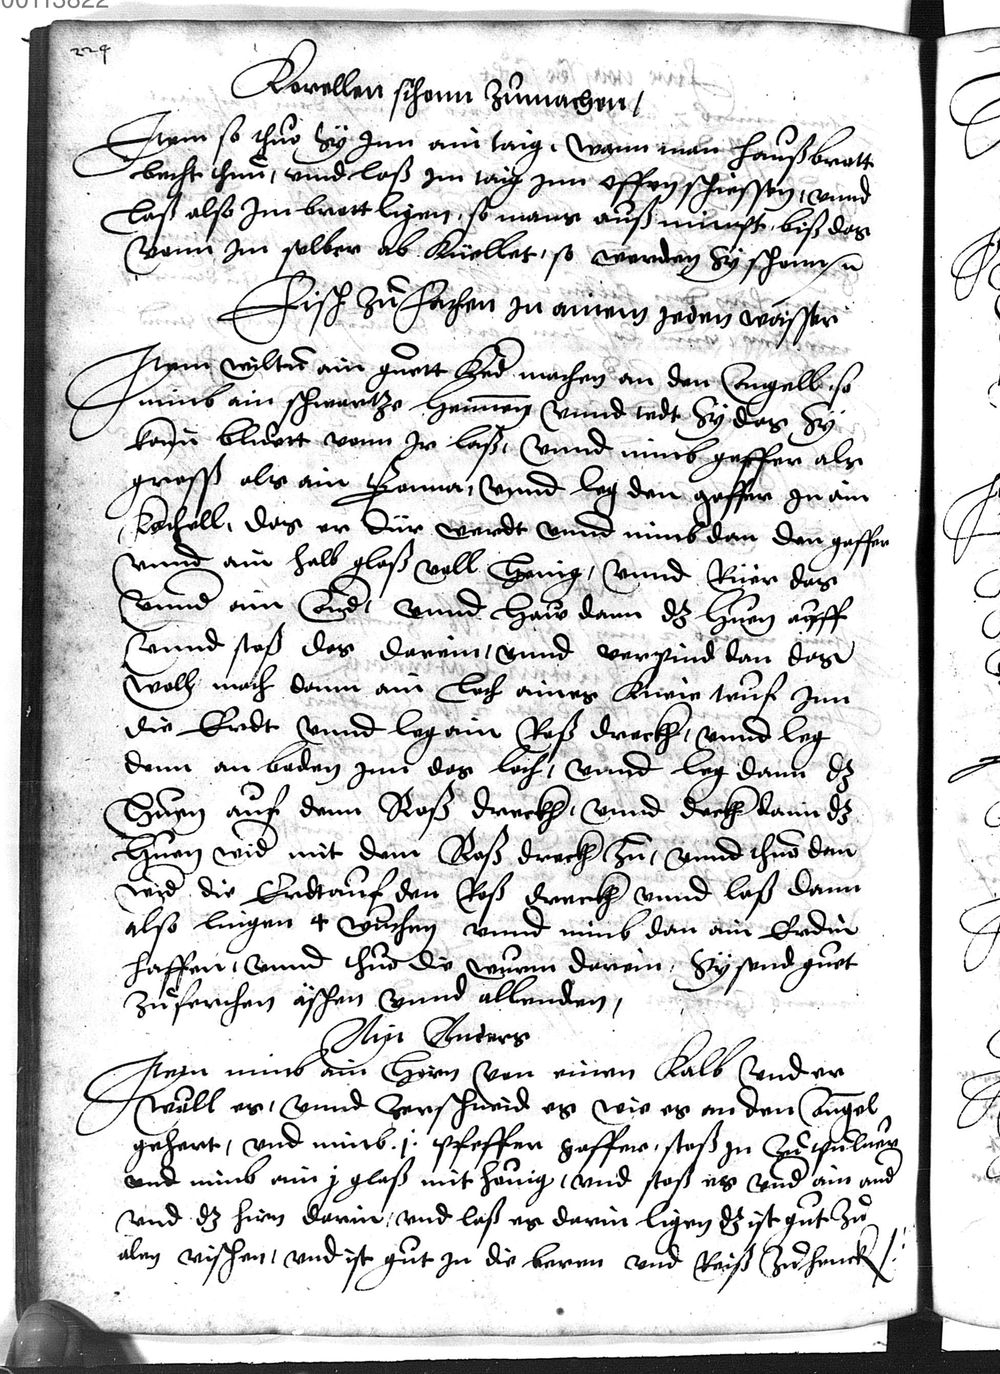 00113822
224
Korellen schonn zumachen /
Item so thuo Sy Inn ain taig, wann man haußbrott
becht thuo, vnnd laß im taig Inn offen schiessen, vnnd
laß also Im brott ligen, so mans auß nimpt, biß das
vonn Im selber ab küellet, so werden Sy schonn
Fisch zu fachen In ainem yeden wasser
Item wiltu ain guett Ked machen an den Angell, so
nimb ain schwartze Hennen vnnd tedt Sy das Sy
kain bluett vonn Ir laß, vnnd nimb gaffer als
groß als ain Bonna, vnnd leg den gaffer In ain
Kachell, das er dür werdt vnnd nimb dan den gaffer
vnnd ain halb glaß voll Honig, vnnd Rüer das
vnnd ain And, vnnd haw dann dz Huen auff
vnnd stoß das darein, vnnd verpind dan das
woll mach dann ain Loch aines Knie teuf Inn
die Erdt vnnd leg ain Roß dreckh, vnnd leg
denn an boden Inn das loch, vnnd leg dann dz
Huen auf denn Roß dreckh, vnnd deckh dann dz
Huen wid mit dem Roß dreckh zu, vnnd thuo dan
wid die Erdt auf den Roß dreckh vnnd laß dann
also lingen 4 wuchen vnnd nimb dan ain Erdin
haffen, vnnd thuo die wurm darein, Sy send guet
zu ferchen äschen vnnd allenden,
Ain Anders
Item nimb ain Hiern von einem Kalb vnd er
wöll es, vnnd zerschneid es wie es an den Angel
gehert, vnd nimb j pfeffer gaffer, stoß In zu puluer
vnd nimb ain j glaß mit honig, vnd stoß es vnd ain and
vnd dz hirn darin, vnd laß es darin ligen dz ist gut zu
alen vischen, vnd ist gut In die beren vnd Reiß zu henck